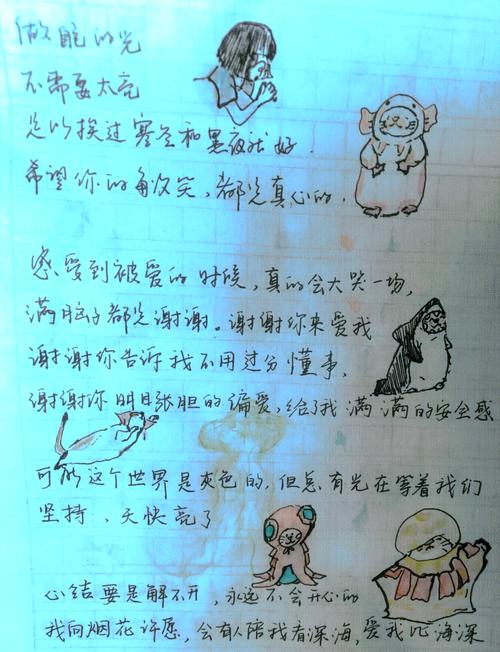 做自己的光
不需要太亮
足以挨过寒冬和黑夜就好.
希望你的每次笑,都是真心的.
感受到被爱的时候,真的会大哭一场,
满脑子都是谢谢。谢谢你来爱我
谢谢你告诉我不用过分懂事.
谢谢你明目张胆的偏爱,给了我满满的安全感
可能这个世界是灰色的,但总有光在等着我们
坚持、天快亮了
心结要是解不开,永远不会开心的
我向烟花许愿,会有人陪我看深海,爱我比海深